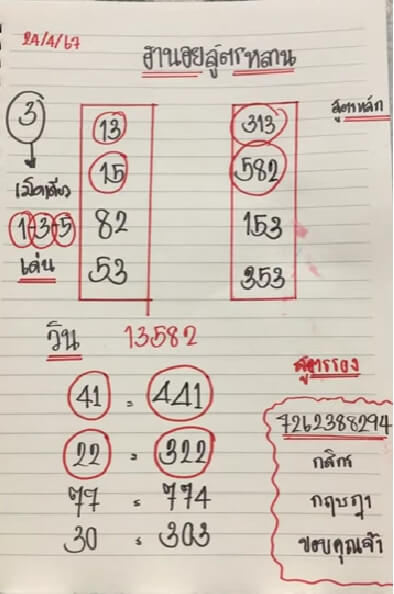 24/4/67
ฮานอยสูตรหลาน
สูตรหลัก
3
13 313
15 582
เม็ดเดียว
1-3-5 82 153
เด่น 53 353
วิน 13582
สูตรรอง
41 = 441
22 = 322
77 = 774
30 = 303
7262388294
กสิกร
กฤษฎา
ขอบคุณจ้า